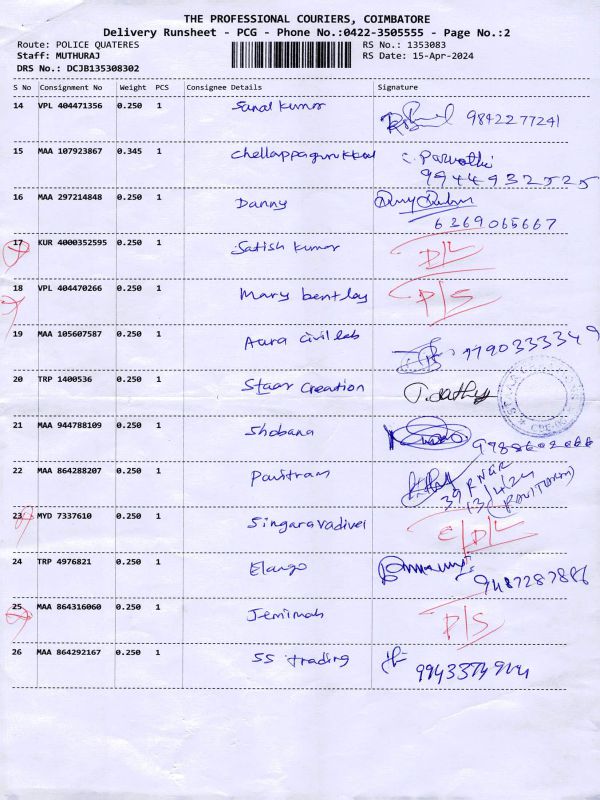 THE PROFESSIONAL COURIERS, COIMBATORE
Delivery Runsheet - PCG - Phone No.:0422-3505555 - Page No.:2
Route: POLICE QUATERES
RS No.: 1353083
Staff: MUTHURAJ
RS Date: 15-Apr-2024
DRS No.: DCJB135308302
S No Consignment No Weight PCS Consignee Details Signature
14 VPL 404471356 0.250 1 Sanal kumar 9842277241
15 MAA 107923867 0.345 1 Chellappagurukkal C. Parvathi
9944932525
16 MAA 297214848 0.250 1 Danny
6369065667
17 KUR 4000352595 0.250 1 Satish kumar D/L
18 VPL 404470266 0.250 1 Mary bentley P/S
19 MAA 105607587 0.250 1 Aara civil lab 7790333349
20 TRP 1400536 0.250 1 Staar Creation
21 MAA 944788109 0.250 1 Shobana
22 MAA 864288207 0.250 1 Pavitram
39 RNGR
13/4/24
23 MYD 7337610 0.250 1 Singaravadivel C/D/L
24 TRP 4976821 0.250 1 Elango
9487287886
25 MAA 864316060 0.250 1 Jemimah P/S
26 MAA 864292167 0.250 1 SS trading